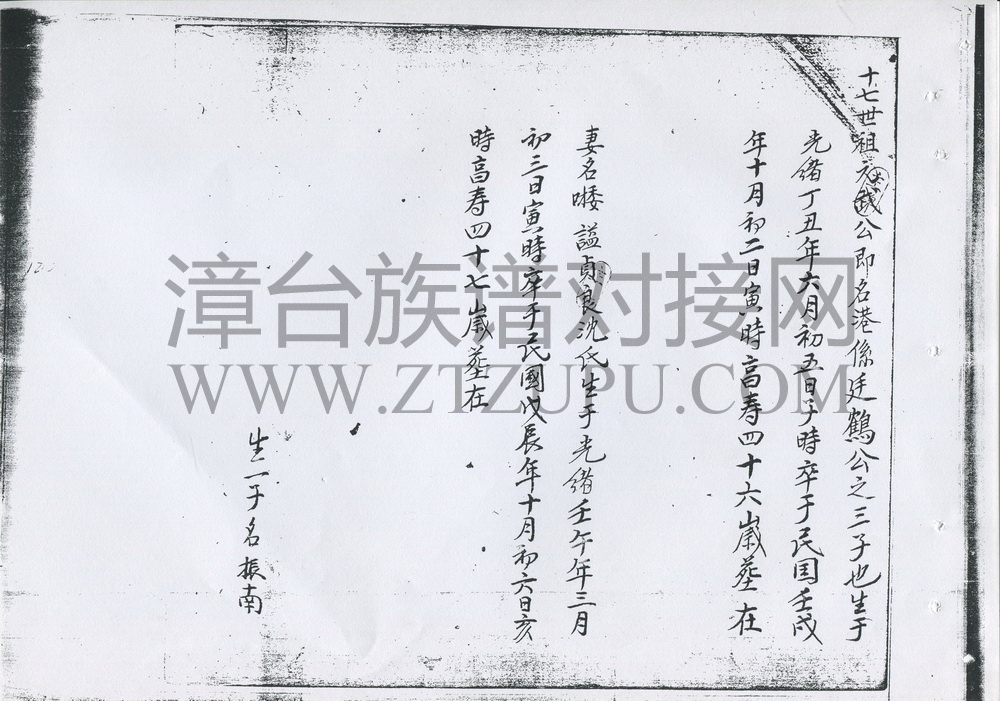 十七世祖元鉞公即名港係廷鶴公之三子也生于
光緒丁丑年六月初五日子時卒于民国壬戌
年十月初二日寅時高寿四十六歲葬在
妻名嘐諡貞良沈氏生于光緒壬午年三月
初三日寅時卒于民國戊辰年十月初六日亥
時高寿四十七歲葬在
生一子名振南
漳台族谱对接网
WWW.ZTZUPU.COM